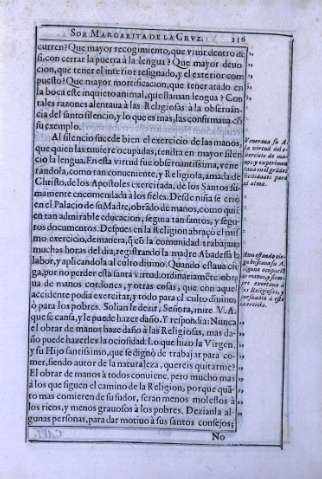 SOR MARGARITA DE LA CRVZ. 216
curren? Que mayor recogimiento, que viuir dentro de
si, con cerrar la puerta à la lengua? Que mayor deuo
cion, que tener el interior resignado, y el exterior com
puesto? Que mayor mortificacion, que tener atado en
la boca este inquieto animal, que llaman lengua? Con
tales razones alentaua à las Religiosas à la obseruan
cia del santo silencio, y lo que es mas, las confirmaua cõ
su exemplo.
Al silencio sucede bien el exercicio de las manos,
que quien las tuuiere ocupadas, tendrà en mayor silen
cio la lengua. En esta virtud fue obseruantissima, vene
randola, como tan conueniente, y Religiosa, amada de
Christo, de los Apostoles exercitada, de los Santos su-
mamente encomendada à los fieles. Desde niña se criò
en el Palacio de su Madre, obrãdo de manos, como quiẽ
en tan admirable educacion, seguia tan santos, y segu-
ros documentos. Despues en la Religion abraçò el mis
mo exercicio, de manera, q̃ cõ la comunidad trabajaua
muchas horas del dia, registrando la madre Abadessa la
labor, y aplicandola al culto diuino. Quando estaua cie
ga, por no perder esta santa virtud, ordinariamẽte obra
ua de manos cordones, y otras cosas, que con aquel
accidente podia exercitar, y todo para el culto diuino,
ò para los pobres. Solian le dezir, Señora, mire V. A.
que se cansa, y le puede hazer daño. Y respondia: Nunca
el obrar de manos haze daño à las Religiosas, mas da-
ño puede hazerles la ociosidad. Lo que hizo la Virgen,
y su Hijo santissimo, que se dignò de trabajar para co-
mer, siendo autor de la naturaleza, quereis quitarme?
El obrar de manos à todos conuiene, pero mucho mas
à los que siguen el camino de la Religion, porque quã-
to mas comieren de su sudor, seran menos molestos à
los ricos, y menos grauosos à los pobres. Dezianla al-
gunas personas, para dar motiuo à sus santos consejos;
No
Veneraua su A.
la virtud del e-
xercicio de ma
nos, y experimen
taua en el grãdes
vtilidades para
el alma.
Aun estando cie
ga
de manos
las Religiosas,